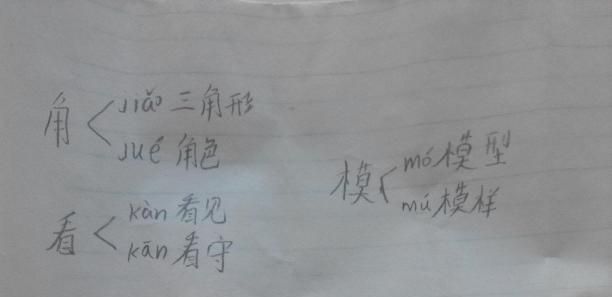 角 jiǎo 三角形
jué 角色
看 kàn 看见
kān 看守
模 mó 模型
mú 模样